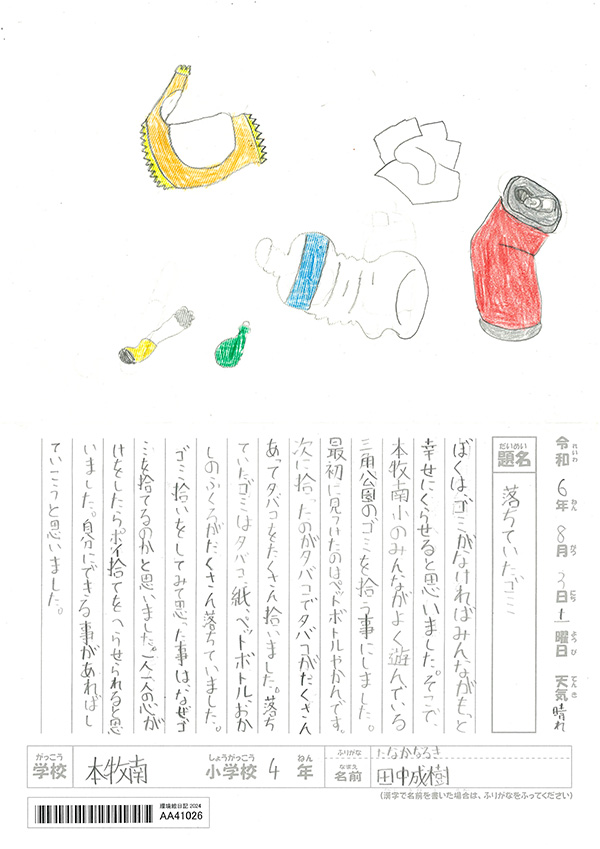 令和6年8月3日土曜日 天気 晴れ
れいわ ねん がつ にち ようび てんき
だいめい
題名 落ちていたゴミ
ぼくは、ゴミがなければみんながもっと
幸せにくらせると思いました。そこで、
本牧南小のみんながよく遊んでいる
三角公園のゴミを拾う事にしました。
最初に見つけたのはペットボトルやかんです。
次に拾ったのがタバコでタバコがたくさん
あってタバコをたくさん拾いました。落ち
ていたゴミはタバコ、紙、ペットボトル、おか
しのふくろがたくさん落ちていました。
ゴミ拾いをしてみて思った事は、なぜゴ
ミを捨てるのかと思いました。一人一人の心が
けをしたらポイ捨てをへらせられると思
いました。自分にできる事があればし
ていこうと思いました。
がっこう しょうがっこう ねん ふりがな たなかなるき
学校 本牧南 小学校 4年 なまえ 名前 田中成樹
(漢字で名前を書いた場合は、ふりがなをふってください)
環境絵日記 2024
AA41026